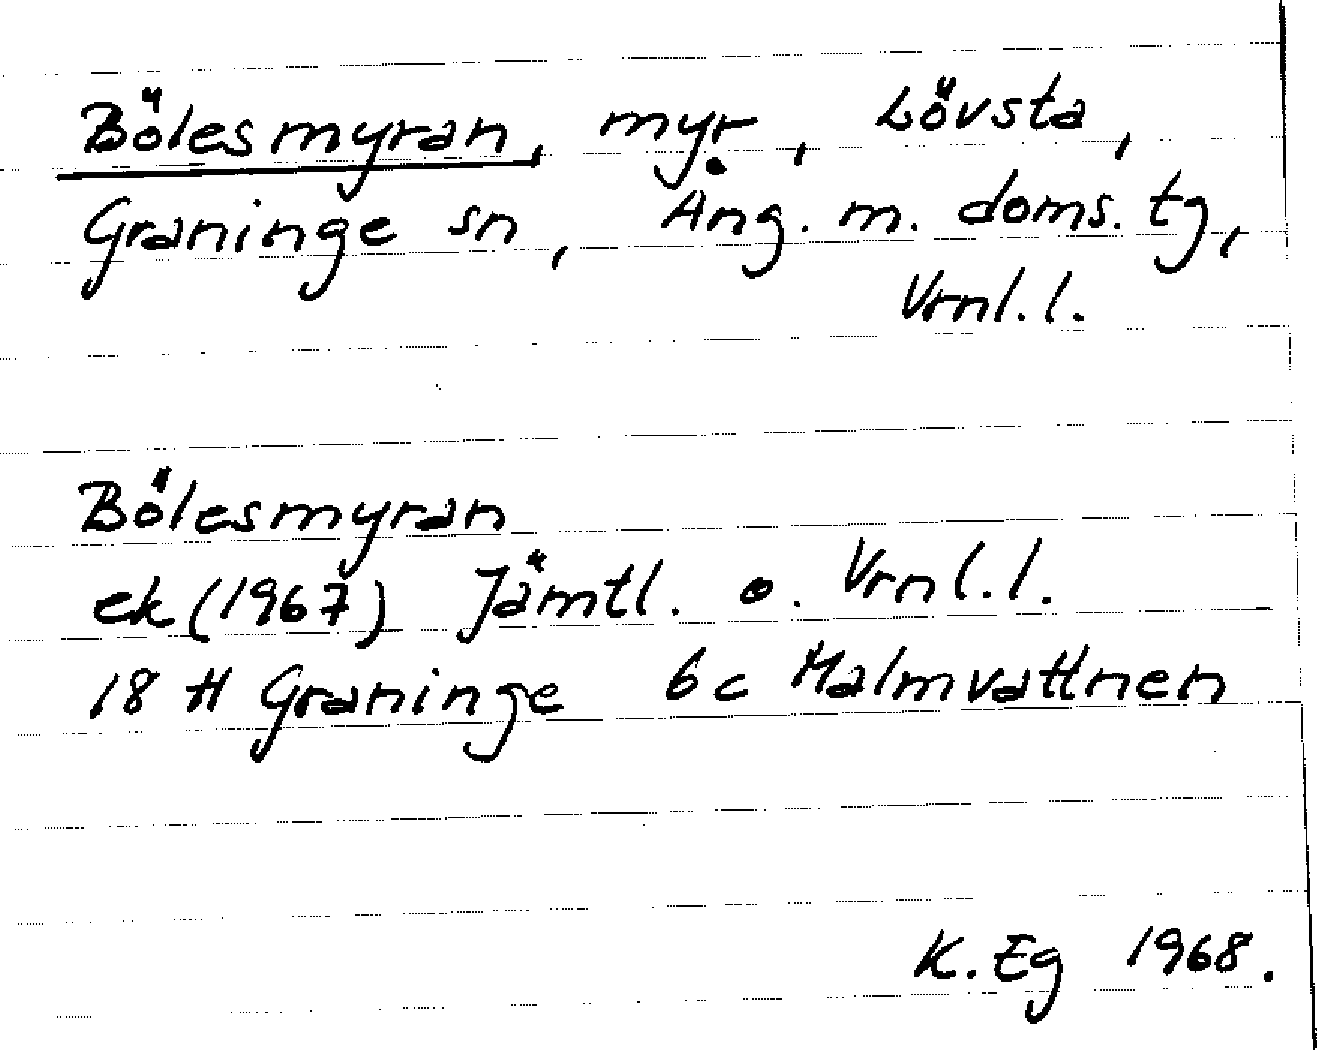 Bölesmyran, myr, Lövsta,
Graninge sn, Ång. m. doms. tg,
Vrnl. l.
Bölesmyran
ek (1967) Jämtl. o. Vrnl. l.
18 H Graninge 6c Malmvattnen
K. Eg 1968.